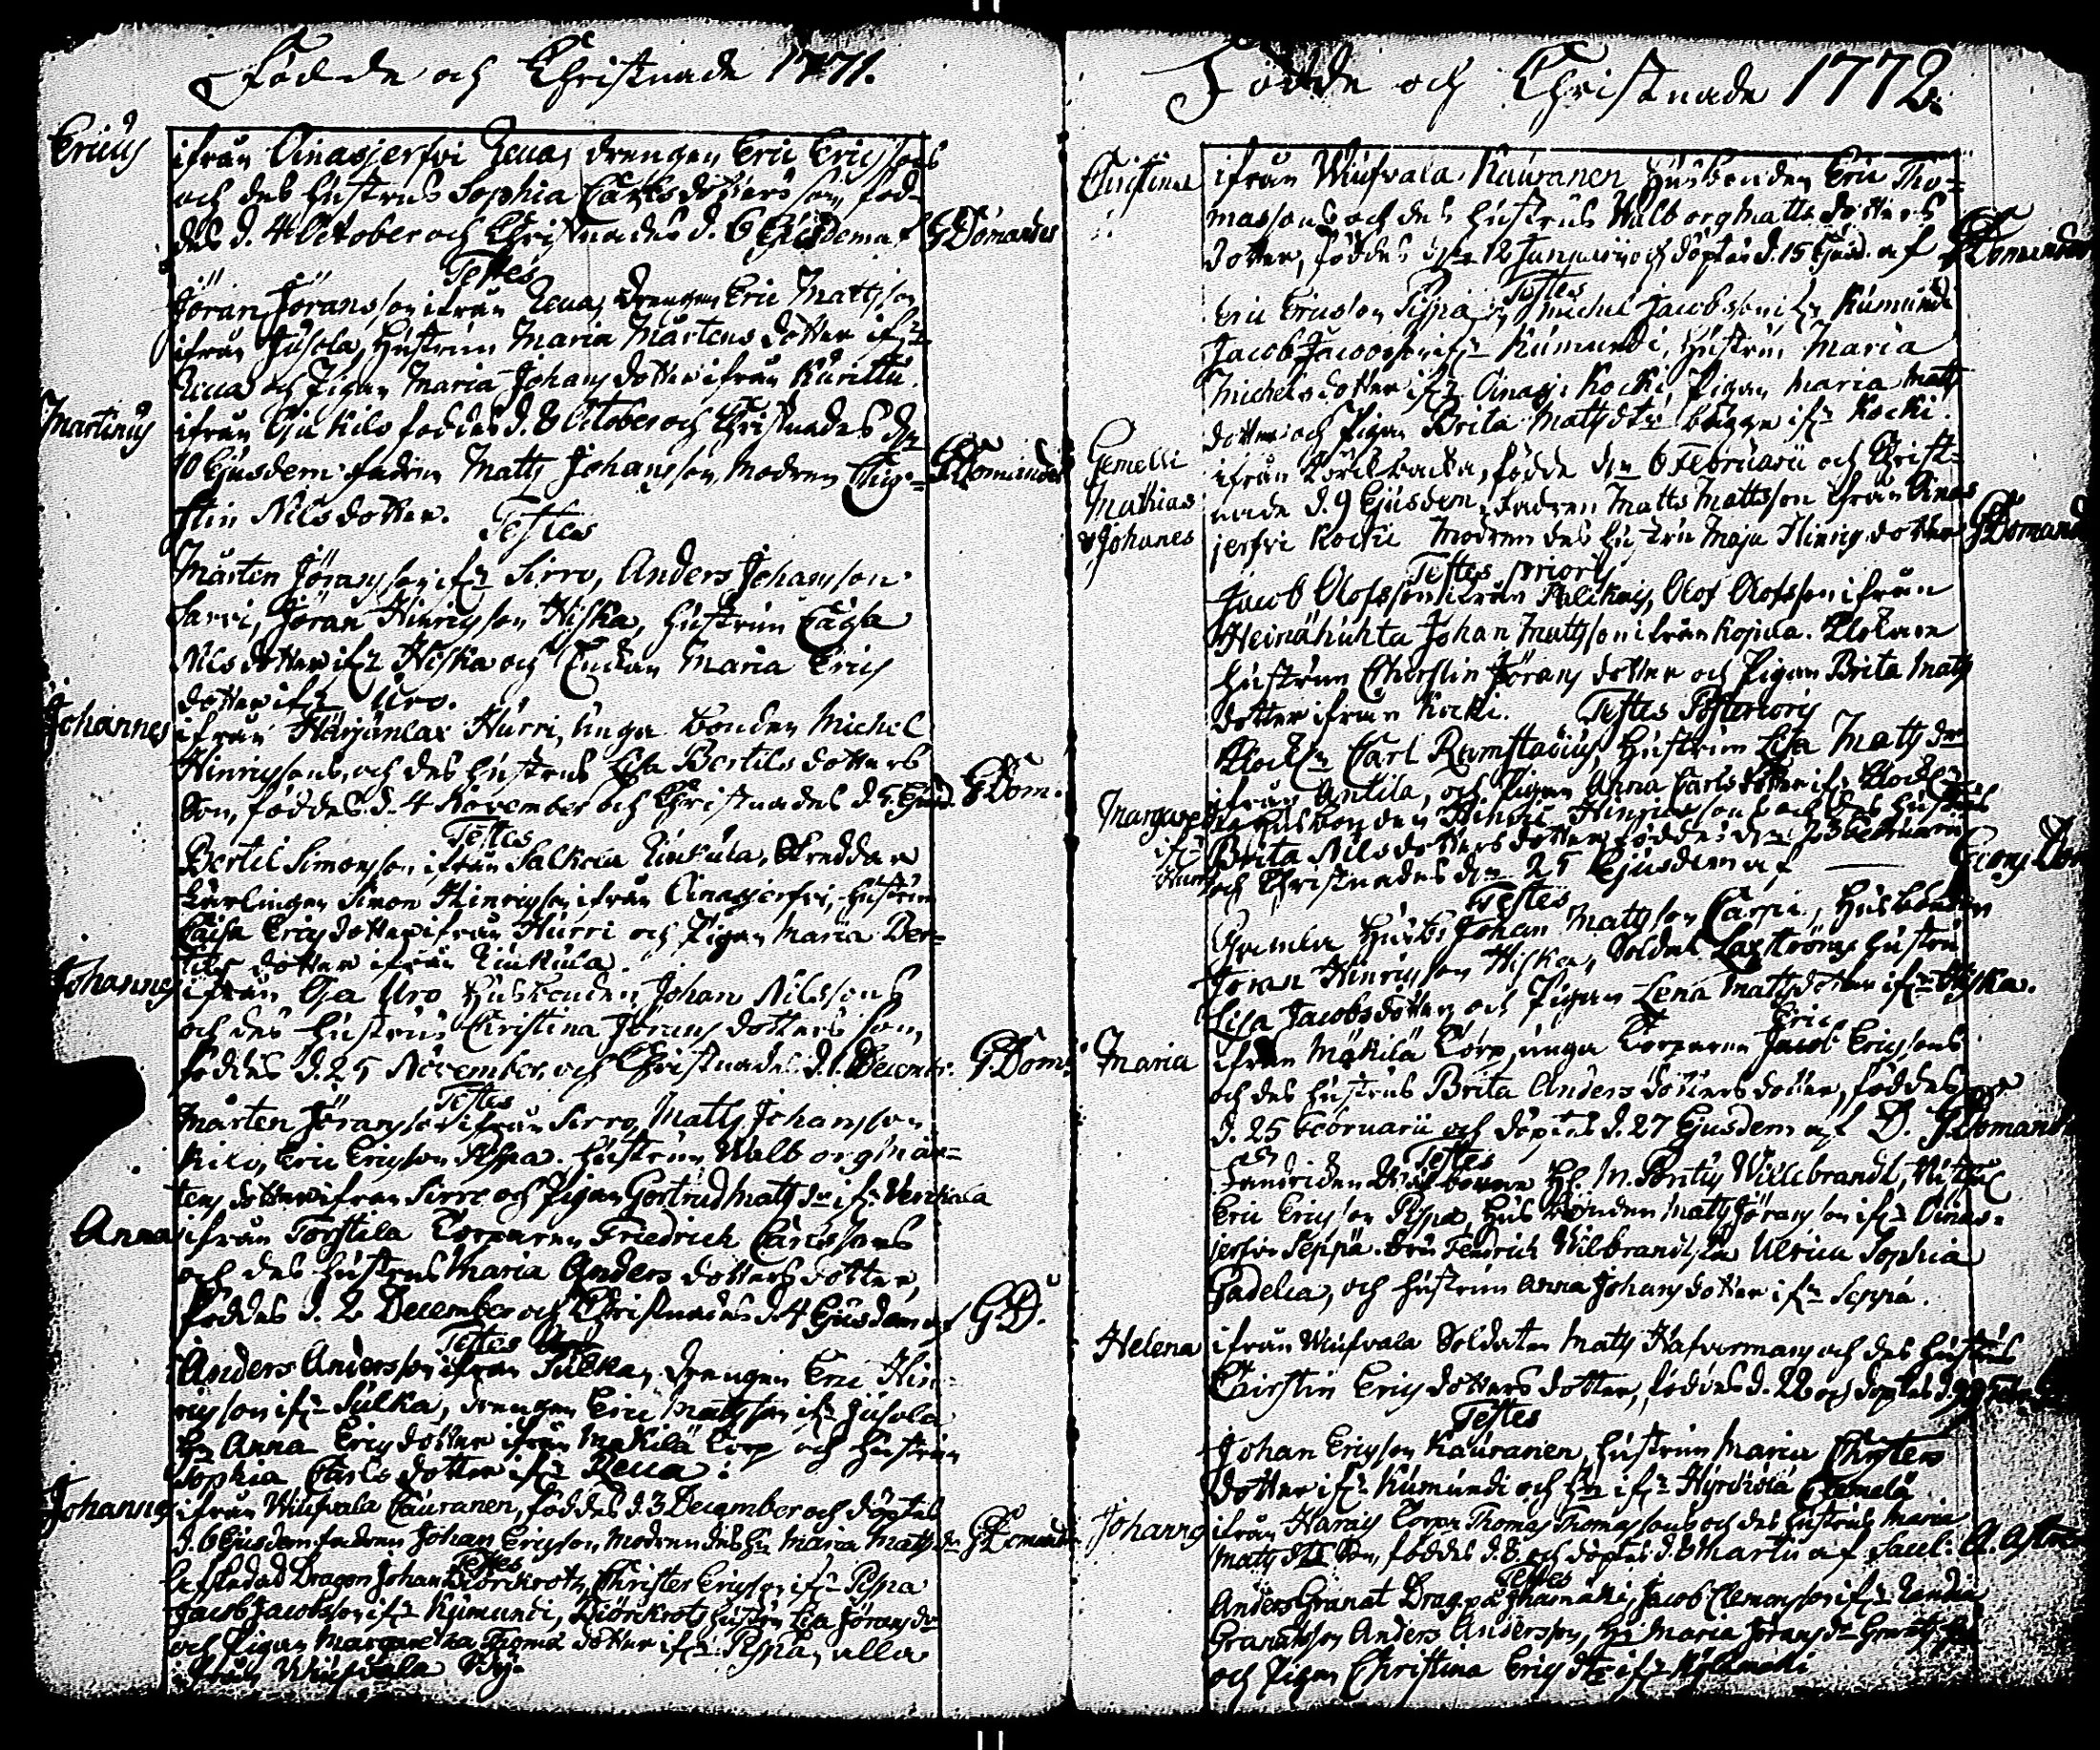 Födde och Christnade 1771.
Ericus
ifrån Oinasjerfvi Reua, drengen Eric Ericssons
och des hustrus Sophia Carlsdotters son, föd-
des d. 4 October och Christnades d. 6 Ejusdem af GDomander
Testes
Jöran Jöransson ifrån Reua, drengen Eric Mattsson
ifrån Jusola, Hustrun Maria Mårtens dotter ifrn
Reua och Pigan Maria Johans dotter ifrån Kurittu.
Martinus
ifrån Kilo föddes d. 8 October och Christnades dn
10 Ejusdem fadren Matts Johansson, modren Chir- GDomander
stin Nilsdotter.
Testes
Mårten Jöransson ifrn Sirro, Anders Johansson
Sarvi, Jöran Hinricsson Hiska, hustrun Cajsa
Nilsdotter ifrn Hiska och Enkan Maria Erics
dotter ifrn Uro.
Johannes
ifrån Härjänlax Hurri, unga bonden Michel
Hinricssons, och des hustrus Lisa Bertils dotters
Son, föddes d. 4 November och Christnades d. 5 Ejusd. GDom.
Testes
Bertil Simonsson ifrån Salkola Kiukula, Skreddare
Lärlingen Simon Hinricsson ifrån Oinasjerfvi, hustrun
Caisa Erics dotter ifrån Hurri och Pigan Maria Ber-
tils dotter ifrån Kiukula.
Johannes
ifrån Uro Husbonden Johan Nilssons
och des hustrus Christina Jörans dotters son,
föddes d. 25 November och Christnades d. 1 Decembr. GDom.
Testes
Mårten Jöransson ifrån Sirro, Matts Johansson
Kilo, Eric Ericsson Pispa. hustrun Walborg Mår-
tens dotter ifrån Sirro och Pigan Gertrud Matts dr ifrn
Anna
ifrån Torstila Torparen Friedrich Carlssons
och des hustrus Maria Anders dotters dotter,
föddes d. 2 December och Christnades d. 4 Ejusdem af G.D.
Testes
Anders Andersson ifrån Sulka, drengen Eric Hin-
ricsson ifrn Sulka, drengen Eric Mattsson ifrn Jusola
Hu Anna Erics dotter ifrån Mäkilä Torp och hustrun
Sophia Carls dotter ifrn Reua.
Johannes
ifrån Wiufvala Cauranen, föddes d. 3 December och döptes
d. 6 Ejusdem fadren Johan Ericsson modren des hu Maria Matts dr GDomander
Testes
Afskedad Dragon Johan Christer Ericsson ifrn Pispa
Jacob Jacobsson ifrn Kumundi, hustru Lisa Jörans dr
och Pigan Margaretha Thomæ dotter ifrn Pispa, alla
ifrån Wiufvala By.
Födde och Christnade 1772.
Christina
ifrån Wiufvala Kauranen Husbonden Eric Tho-
massons och des hustrus Walborg Matts dotters
dotter, föddes dn 12 Januarii och döptes d. 15 Ejusd. af GDomander
Testes
Eric Ericsson Pispa, Michel Jacobsson ifrn Kumundi
Jacob Jacobsson ifrn Kumundi, hustrun Maria
Michelsdotter ifrn Oinasj. Kocki, Pigan Maria Matts
dotter och Pigan Brita Matts dtr bägge ifrn Kocki.
Gemelli
Mathias
& Johanes
ifrån, födde dn 6 Februarii och Christ-
nade d. 9 Ejusdem, Fadren Matts Mattsson ifrån Oinas
jerfvi Kocki Modren des hustru Maja Hinrics dotter GDomand
Testes prioris
Jacob Olofsson ifrån, Olof Olofsson ifrån
Heinähuhta Johan Mattsson ifrån Kojvia. Klokare
hustrun Cherstin Jörans dotter och Pigan Brita Matts
dotter ifrån Kocki. Testes Posterioris
Carl Ramstadius, hustrun Lisa Matts dr
ifrån Antila, och Pigan Anna Carls dotter ifrn
Margareta
Husbonden Hinric Hinricssons och des hustrus
Brita Nils dotters dotter föddes dn 23 Februarii
och Christnades dn 25 Ejusdem af Georg. Dom
Testes
Gamla Husb. Johan Mattsson Carpi, Husbonden
Jöran Hinricsson Hiska, Soldat Laxströms hustru
Lisa Jacobsdotter och Pigan Lena Mattsdotter ifrn Hiska.
Maria
Eric
ifrån Mäkilä Torp, unga Torparen Jacob Ericssons
och des hustrus Brita Anders dotters dotter, föddes
d. 25 Februarii och döptes d. 27 Ejusdem af D. GDomand
Testes
Fendriken Hl. M. Willebrandt,
Eric Ericsson Pispa, Husbonden Matts Jöransson ifrn Oinas-
jerfvi Seppä. Fru Fendrich Wilbrandtska Ulrica Sophia
Gadelia, och hustrun Anna Johans dotter ifrn Seppä.
Helena
ifrån Wiufvala Soldaten Matts Hafvermans och des hustrus
Chirstin Erics dotters dotter, föddes d. 22 och döptes d.
Testes
Johan Ericsson Kauranen, hustrun Maria Christers
dotter ifrn Kumundi och
Johannes
ifrån Harais Torp Thomas Thomassons och des hustrus Maria
Matts dtrs Son, föddes d. 8 och döptes d. 8 Martii af Sacel.
Testes
Anders Granat Drag. på, Jacob Clemensson ifrn
Granatsson Anders Andersson, Hu Maria Jörans dr
och Pigan Christina Erics dtr ifrn